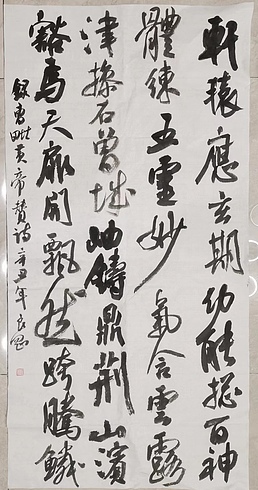 軒轅應玄期幼能揔百神
體練五靈妙氣含雲露
津摻石曾城岫鑄鼎荆山濱
豁焉天扉開飄然跨騰鱗
錄曹毗黄帝贊詩辛丑年良